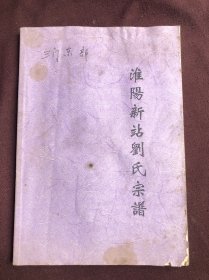 淮陽新站劉氏宗譜